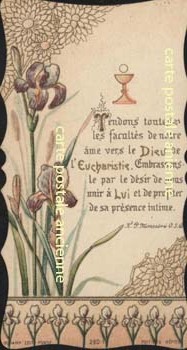 Tendons toutes
les facultés de notre
âme vers le Dieu de
l'Eucharistie. Embrassons
le par le désir de nous
unir à Lui et de profiter
de sa présence intime.
carte postale ancienne
carte postale ancienne